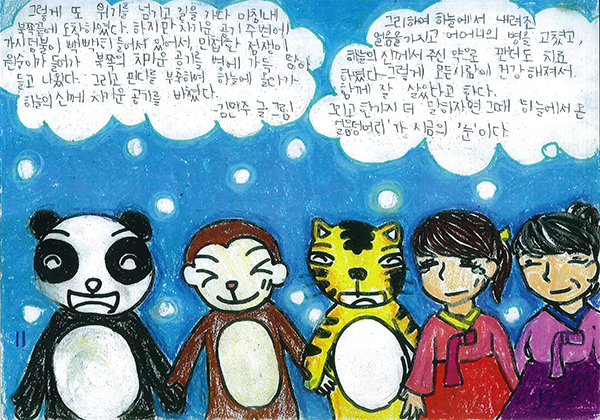 그렇게 또 위기를 넘기고 길을 가다 마침내
북쪽끝에 도착하였다. 하지만 차가운 공기 주변에
가시덤불이 빽빽히 들어서 있어서, 민첩한
원숭이가 들어가 북쪽의 차가운 공기를 병에 가득 담아
들고 나왔다. 그리고 판다를 부축하여, 하늘에 올라가
하늘의 신께 차가운 공기를 바쳤다.
-김민주 글 그림
그리하여 하늘에서 내려진
얼음을 가지고 어머니의 병을 고쳤고,
하늘의 신께서 주신 약으로 판더도 치료
하였다. 그렇게 모든사람이 건강해져서,
함께 잘 살았다고 한다.
그리고 한가지 더 말하자면 그때 '하늘에서 온
얼음덩어리'가 지금의 '눈'이다.
11
12